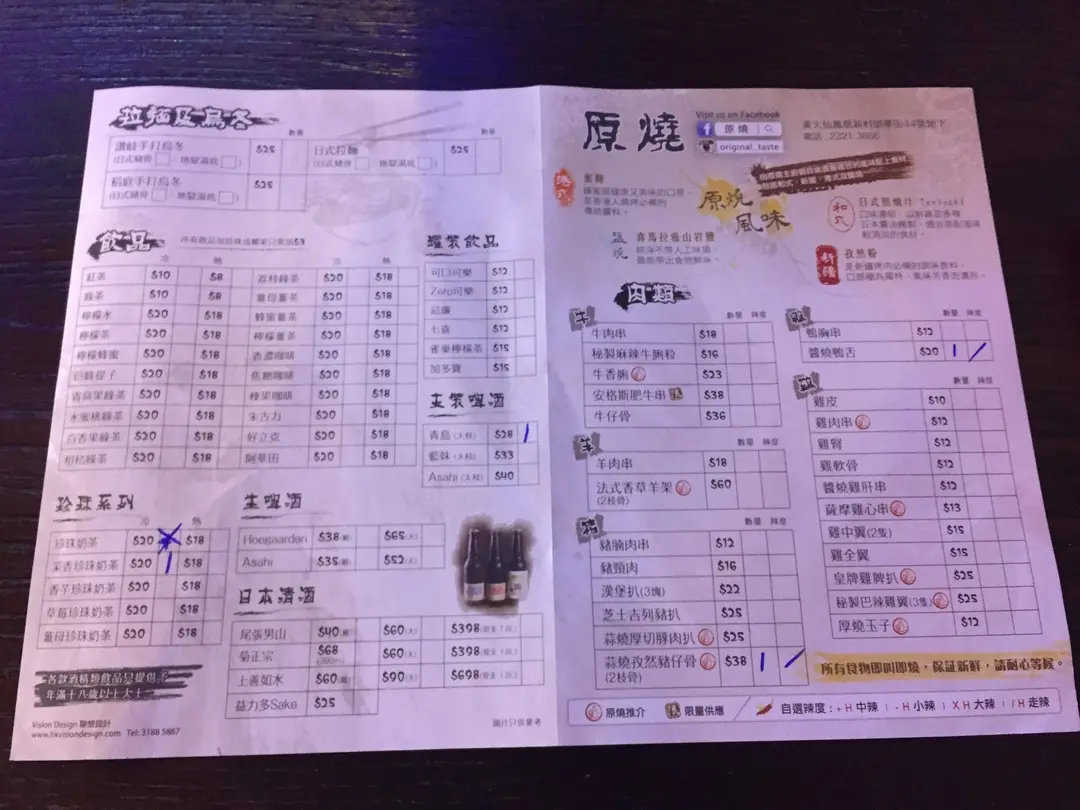 拉麵及烏冬
數量
數量
讚岐手打烏冬 $25
(日式豬骨 地獄湯底)
日式拉麵 $25
(日式豬骨 地獄湯底)
稻庭手打烏冬 $25
(日式豬骨 地獄湯底)
飲品
所有飲品加珍珠或椰果只需加$3
冷 熱 冷 熱
紅茶 $10 $8 荔枝綠茶 $20 $18
綠茶 $10 $8 薑母薑茶 $20 $18
檸檬水 $20 $18 蜂蜜薑茶 $20 $18
檸檬茶 $20 $18 檸檬薑茶 $20 $18
檸檬蜂蜜 $20 $18 香濃咖啡 $20 $18
巨峰提子 $20 $18 焦糖咖啡 $20 $18
青蘋果綠茶 $20 $18 榛果咖啡 $20 $18
水蜜桃綠茶 $20 $18 朱古力 $20 $18
百香果綠茶 $20 $18 好立克 $20 $18
柑桔綠茶 $20 $18 阿華田 $20 $18
罐裝飲品
可口可樂 $12
Zero可樂 $12
忌廉 $12
七喜 $12
雀巢檸檬茶 $15
加多寶 $15
支裝啤酒
青島(大枝) $28 1
藍妹(大枝) $33
Asahi(大枝) $40
珍珠系列
冷 熱
珍珠奶茶 $20 $18
茉香珍珠奶茶 $20 1 $18
香芋珍珠奶茶 $20 $18
草莓珍珠奶茶 $20 $18
薑母珍珠奶茶 $20 $18
生啤酒
Hoegaarden $38 $65(大)
Asahi $35 $52(大)
日本清酒
尾張男山 $40 $60(大) $398
菊正宗 $68 $60(大) $398
上善如水 $60 $90(大) $698
益力多Sake $25
各款酒精類飲品只提供給
年滿十八歲以上人士
Vision Design 聯想設計
www.hkvisiondesign.com Tel: 3188 5867
圖片只供參考
原燒
Visit us on Facebook
原燒
original_taste
黃大仙鳳凰新村
電話：2321 3856
港式
蜜糖
鹽燒
喜馬拉雅山岩鹽
原燒風味
和式
日式照燒汁 Teriyaki
新疆
孜然粉
肉類
牛
數量 辣度
牛肉串 $18
秘製麻辣牛脷粒 $16
牛香脷 $23
安格斯肥牛串 $38
牛仔骨 $36
羊
數量 辣度
羊肉串 $18
法式香草羊架 $60
(2枝骨)
豬
數量 辣度
豬腩肉串 $12
豬頸肉 $16
漢堡扒(3塊) $22
芝士吉列豬扒 $25
蒜燒厚切豚肉扒 $25
蒜燒孜然豬仔骨 $38 1 /
(2枝骨)
鴨
數量 辣度
鴨胸串 $12
醬燒鴨舌 $20 1 /
雞
數量 辣度
雞皮 $10
雞肉串 $12
雞腎 $12
雞軟骨 $12
醬燒雞肝串 $12
薩摩雞心串 $13
雞中翼(2隻) $15
雞全翼 $15
皇牌雞髀扒 $25
秘製巴辣雞翼(3隻) $25
厚燒玉子 $12
所有食物即叫即燒，保証新鮮，請耐心等候。
原燒推介 限量供應 自選辣度：+H 中辣 | -H 小辣 | XH 大辣 | /H 走辣